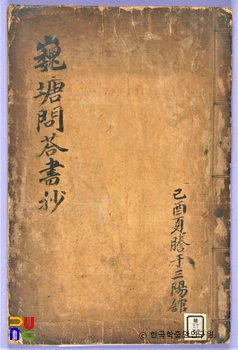 巍塘問答書抄
己酉夏謄于三陽館
© 한국학중앙연구원